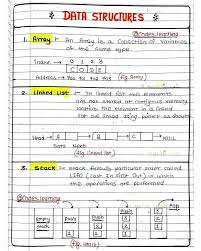 DATA STRUCTURES
@codes.learning
1. Array :- An Array is a Collection of Variables
of the same type.
Index →
C O D E
Address →
(fig. Array)
2. Linked List :- In linked list the elements
are not stored at contiguous memory
location. the element in a linked
list are linked using pointer as shown
Head → A → B → C → NULL
Data Next
(fig. linked list)
3. Stack :- Stack follows particular order called
LIFO (Last In First Out) in which
the operations are performed.
@codes.learning
Push Push Push
Empty
stack
(fig. Stack)